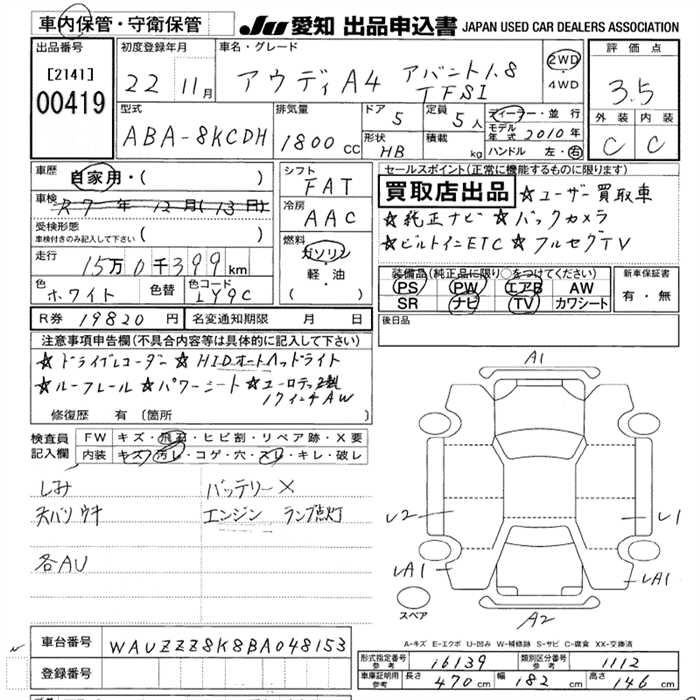 車内保管・守衛保管
JU 愛知 出品申込書 JAPAN USED CAR DEALERS ASSOCIATION
出品番号
[2141]
00419
初度登録年月
22 11月
車名・グレード
アウディA4 アバント1.8
TFSI
2WD・
4WD
評価点
3.5
外装 内装
C C
型式
ABA-8KCDH
排気量
1800 CC
ドア
5
形状
HB
定員
5人
積載
kg
ディーラー・並行
モデル年式 2010年
ハンドル 左・右
車歴
自家用・( )
車検
R7年12月(13日)
受検形態
車検付きのみ記入して下さい ( )
走行
15万0千399km
色
ホワイト
色替
色コード
LY9C
シフト
FAT
冷房
AAC
燃料
ガソリン
・
軽・油
( )
セールスポイント(正常に機能するものに限ります)
買取店出品 ☆ユーザー買取車
☆純正ナビ ☆バックカメラ
☆ビルトインETC ☆フルセグTV
装備品(純正品に限り○をつけてください)
PS PW エアB AW
SR ナビ TV カワシート
新車保証書
有・無
R券 19820円 名変通知期限 月 日
後日品
注意事項申告欄(不具合内容等は具体的に記入して下さい)
☆ドライブレコーダー ☆HIDオートヘッドライト
☆ルーフレール ☆パワーシート ☆ユーロテック製
17インチAW
修復歴 有 (箇所 )
検査員
記入欄
FW キズ・飛石・ヒビ割・リペア跡・X要
内装 キズ・汚レ・コゲ・穴・スレ・キレ・破レ
しみ バッテリーX
天バリ ウキ エンジン ランプ点灯
各AU
A1
L2
L1
LA1
LA1
スペア
A2
A-キズ E-エクボ U-凹み W-補修跡 S-サビ C-腐食 XX-交換済
車台番号 WAUZZZ8K8BA048153
登録番号
形式指定番号
参考
16139
類別区分番号
参考
1112
車庫証明用
参考
長さ 470cm 幅 182cm 高さ 146cm